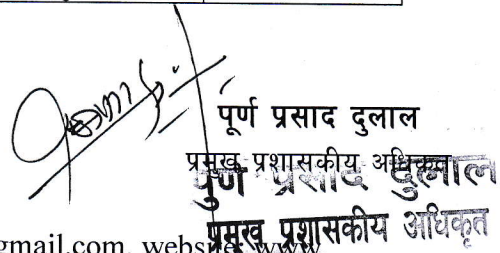 पूर्ण प्रसाद दुलाल
प्रमुख प्रशासकीय अधिकृत
पुर्ण प्रसाद दुलाल
प्रमुख प्रशासकीय अधिकृत
gmail.com, website: www